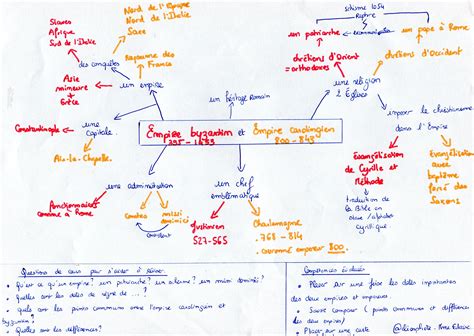 Nord de l'Espagne
Nord de l'Italie
Saxe
Slaves
Afrique
Sud de l'Italie
schisme 1054
Rupture
un patriarche
excommunication
un pape à Rome
chrétiens d'Orient
= orthodoxes
chrétiens d'Occident
Royaume des
Francs
des conquêtes
Asie
mineure +
Grèce
un empire
un héritage romain
une religion
2 Églises
imposer le christianisme
dans l'Empire
Constantinople
une
capitale
Aix-la-Chapelle
Empire byzantin et Empire carolingien
395-1453
800-843
Évangélisation
de Cyrille et
Méthode
Évangélisation
avec
baptême
forcé des
Saxons
traduction de
la Bible en
alphabet
cyrillique
une administration
un chef
emblématique
Fonctionnaires
comme à Rome
Comtes
missi
dominici
Justinien
527-565
Charlemagne
768-814
couronné empereur 800
Questions de cours pour s'aider à réviser
• Qu'est ce qu'un empire? un patriarche? un schisme? un missi dominici?
• Quelles sont les dates de règne de ...?
• Quels sont les points communs entre l'empire carolingien et
byzantin?
• Quelles sont les différences?
Compétences à savoir
• Placer sur une frise les dates importantes
des deux empires et repères.
• Savoir comparer (points communs et différences)
• Placer sur une carte